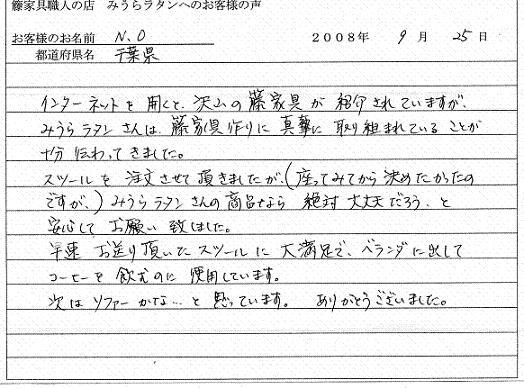 籐家具職人の店 みうらラタンへのお客様の声
お客様のお名前 N.O 2008年 9月 25日
都道府県名 千葉県
インターネットを開くと、沢山の藤家具が紹介されていますが、
みうらラタンさんは、藤家具作りに真摯に取り組まれていることが
十分伝わってきました。
スツールを注文させて頂きましたが、(座ってみてから決めたかったの
ですが、)みうらラタンさんの商品なら絶対大丈夫だろう、と
安心してお願い致しました。
早速お送り頂いたスツールに大満足で、ベランダに出して
コーヒーを飲むのに使用しています。
次はソファーかな…と思っています。 ありがとうございました。